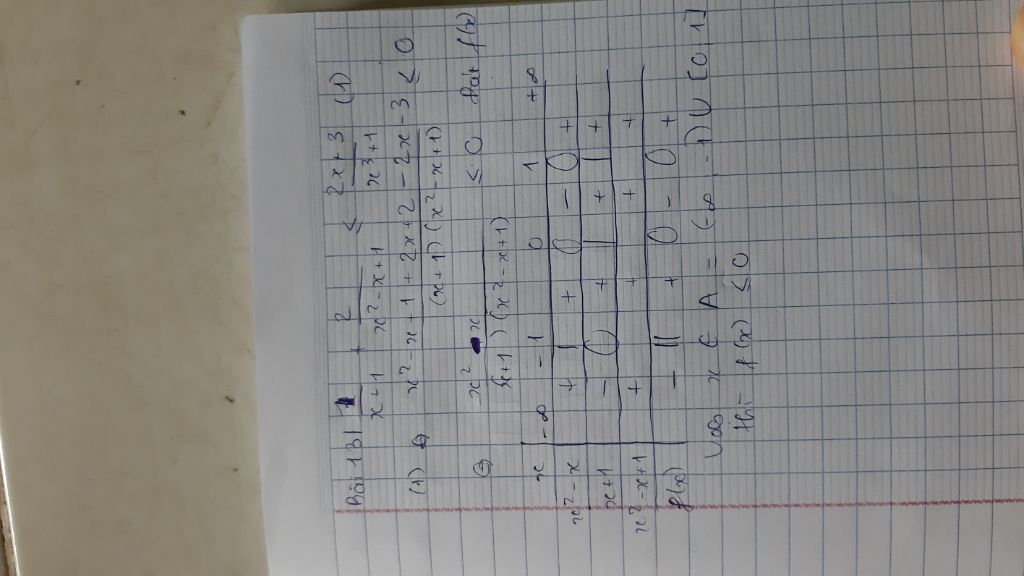 Bài 131 1/(x+1) + 2/(x² - x + 1) ≤ (2x + 3)/(x³ + 1) (1)
(1) ⇔ (x² - x + 1 + 2x + 2 - 2x - 3)/((x+1)(x² - x + 1)) ≤ 0
⇔ (x² - x)/((x+1)(x² - x + 1)) ≤ 0 Đặt f(x)
x -∞ -1 0 1 +∞
x² - x + | + 0 - 0 +
x+1 - 0 + | + | +
x² - x + 1 + + + +
f(x) - || + 0 - 0 +
Vậy x ∈ A = (∞, -1) ∪ [0, 1]
thì f(x) ≤ 0